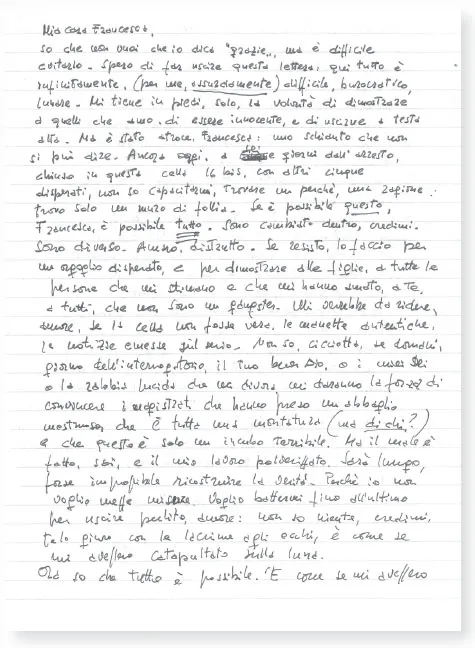 Mia cara Francesca,
so che non vuoi che io dica "grazie", ma è difficile
evitarlo. Spero di far uscire questa lettera, qui tutto è
infinitamente, (per me, assurdamente) difficile, burocratico,
lunare. Mi tiene in piedi, solo, la volontà di dimostrare
a quelli che amo di essere innocente, e di uscirne a testa
alta. Ma è stato atroce, Francesca: uno schianto che non
si può dire. Ancora oggi, a sei giorni dall'arresto,
chiuso in questa cella 16 bis, con altri cinque
disperati, non so capacitarmi, trovare un perché, una ragione.
trovo solo un muro di follia. Se è possibile questo,
Francesca, è possibile tutto. Sono cambiato dentro, credimi.
Sono diverso. Amaro, distrutto. Se resisto, lo faccio per
un orgoglio disperato, e per dimostrare alle figlie, a tutte le
persone che mi stimano e che mi hanno amato, a te,
a tutti, che non sono un gangster. Mi verrebbe da ridere,
amore, se la cella non fosse vera, le manette autentiche,
le notizie emesse sul mio. Non so, cicciotta, se domani,
giorno dell'interrogatorio, il tuo buon Dio, o i miei
o la rabbia lucida che mi divora mi daranno la forza di
convincere i magistrati che hanno preso un abbaglio
mostruoso, che è tutta una montatura (ma di chi?)
e che questo è solo un incubo terribile. Ma il male è
fatto, sai, e il mio lavoro polverizzato. Sarà lungo,
forse improbabile ricostruire la verità. Perché io non
voglio mezze misure. Voglio battermi fino all'ultimo
per uscire pulito, amore: non so niente, credimi,
te lo giuro con le lacrime agli occhi, è come se
mi avessero catapultato sulla luna.
Ora so che tutto è possibile. E' come se mi avessero